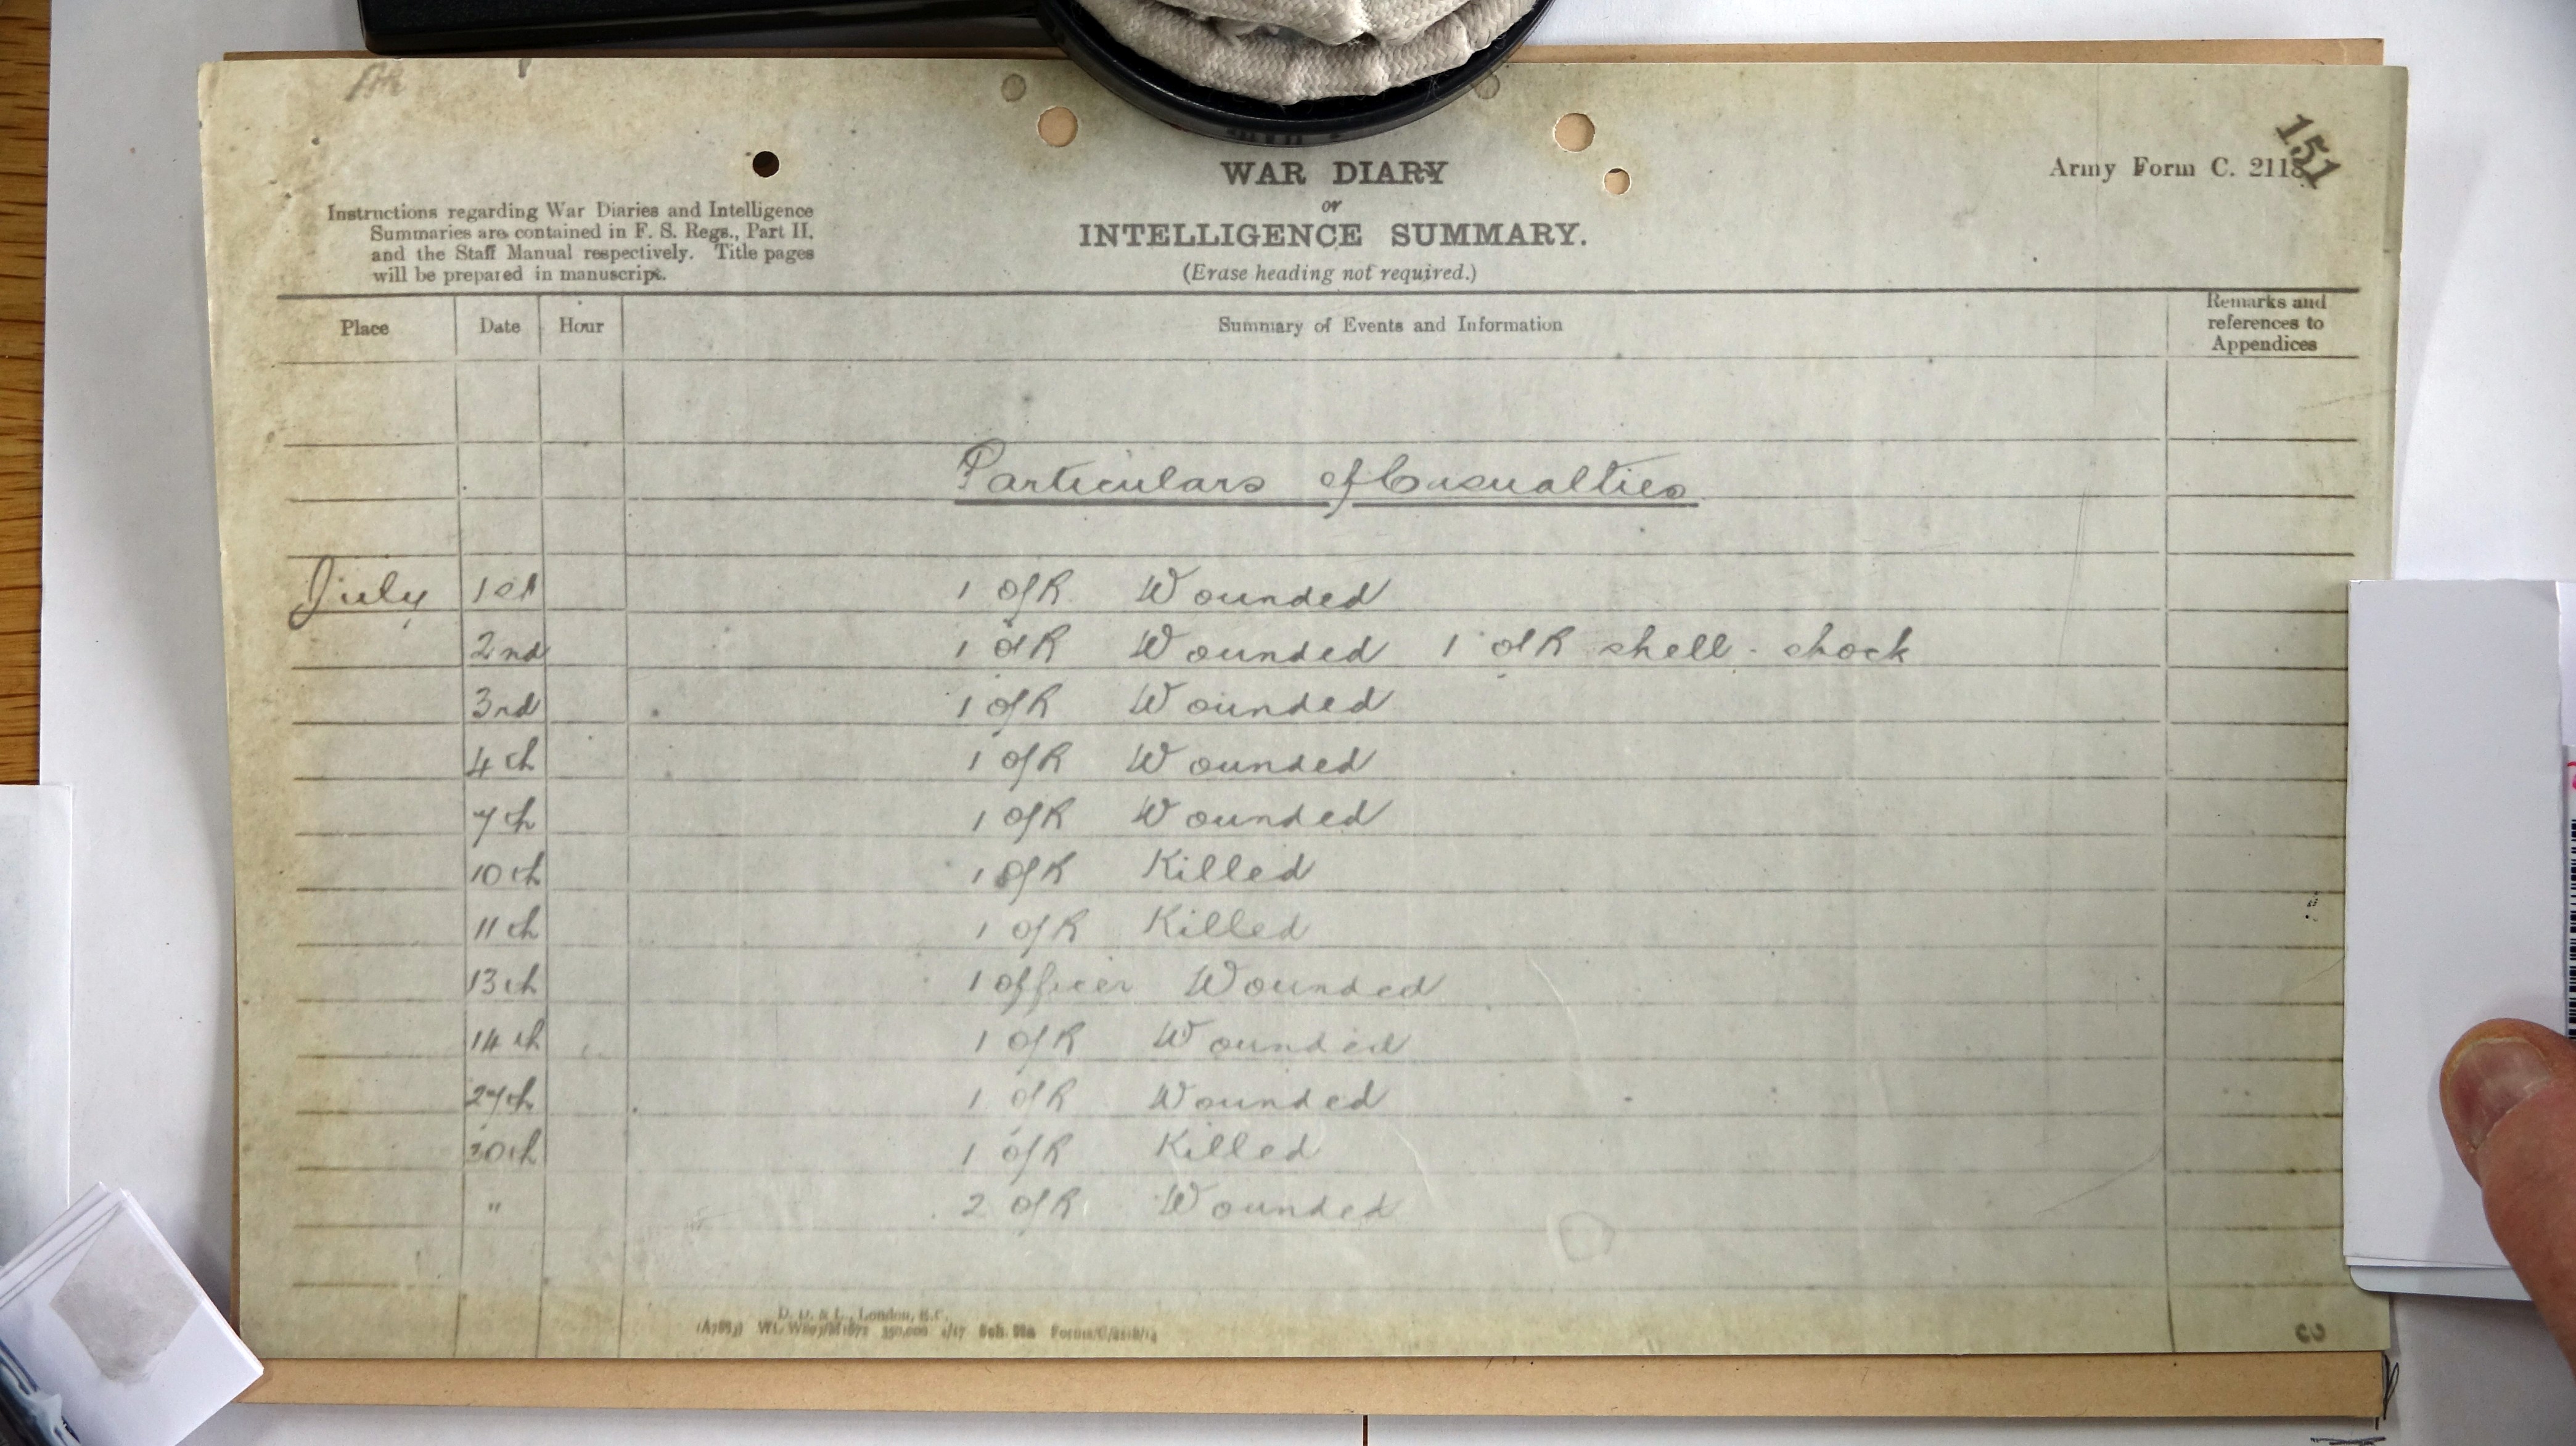 151
WAR DIARY
Army Form C. 2118.
or
Instructions regarding War Diaries and Intelligence
Summaries are contained in F. S. Regs., Part II.
and the Staff Manual respectively. Title pages
will be prepared in manuscript.
INTELLIGENCE SUMMARY.
(Erase heading not required.)
Place Date Hour Summary of Events and Information Remarks and references to Appendices
Particulars of Casualties
July 1st 1 O/R Wounded
2nd 1 O/R Wounded 1 O/R shell-shock
3rd 1 O/R Wounded
4th 1 O/R Wounded
7th 1 O/R Wounded
10th 1 O/R Killed
11th 1 O/R Killed
13th 1 officer Wounded
14th 1 O/R Wounded
27th 1 O/R Wounded
30th 1 O/R Killed
" 2 O/R Wounded
D. D. & L., London, E.C.
350,000 4/17 Sch. 52a